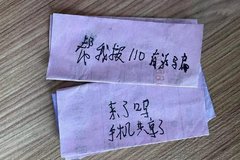 帮我报110有诈骗
来了吗
手机关了